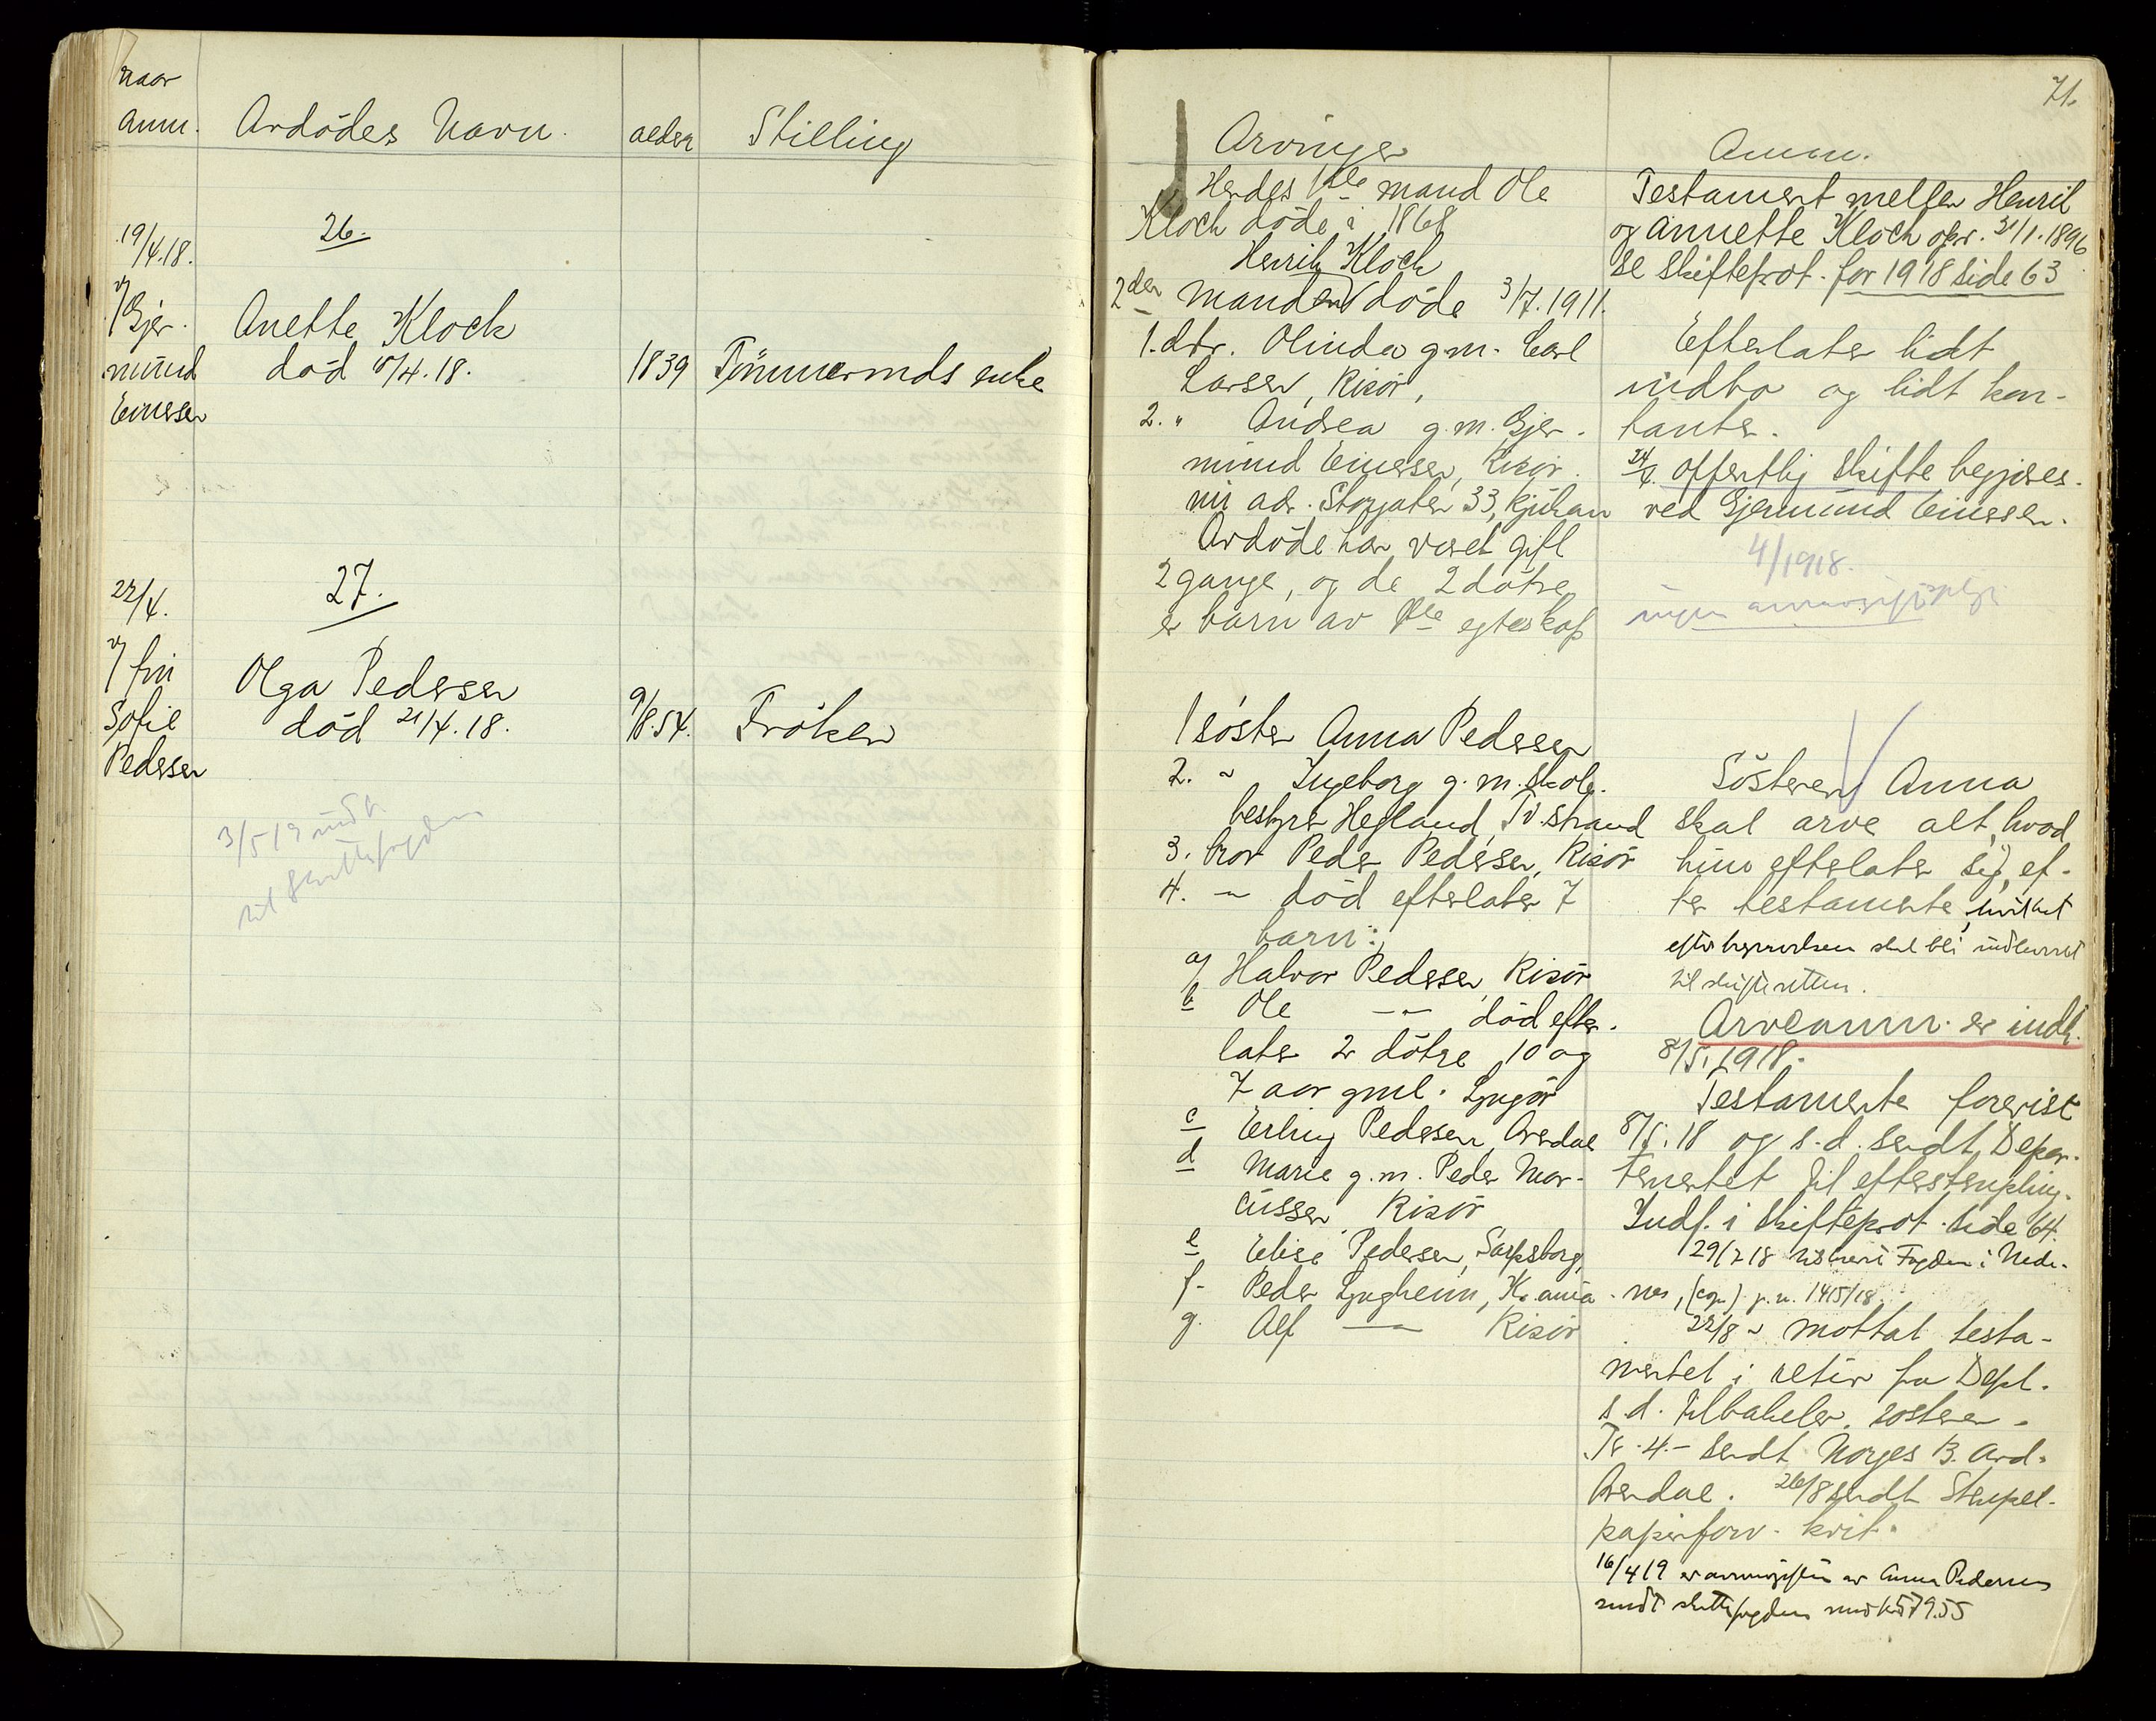 naar
anm.
Avdødes Navn.
alder
Stilling
19/4.18.
v/ Gjer-
mund
Einersen
26.
Anette Klock
død 15/4.18.
1839
Tømmermds enke
22/4.
v/ frk
Sofie
Pedersen
27.
Olga Pedersen
død 21/4.18.
9/8.54.
Frøken
3/5 19 indb.
til skattefogden
71.
Arvinger
Hendes 1ste mand Ole
Kloch døde i 1868
Henrik Kloch
2den manden døde 3/7.1911.
1. dtr. Olinda g.m. Carl
Larsen, Risør,
2. " Andrea g.m. Gjer-
mund Einersen, Risør.
nu adr. Storgaten 33, Rjukan
Avdøde har været gift
2 gange, og de 2 døtre
er barn av 1ste egteskap
1 søster Anna Pedersen
2. " Ingeborg g.m. skole-
bestyrer Hegland, Tv.strand
3. bror Peder Pedersen, Risør
4. — død efterlater 7
barn:
a/ Halvor Pedersen, Risør
b Ole —"— død efter-
later 2 døtre 10 og
7 aar gml. Lyngør
c Erling Pedersen, Arendal
d Marie g.m. Peder Mar-
cussen Risør
e Elise Pedersen, Sarpsborg,
f- Peder Lyngheim, Kr.ania
g. Alf —"— Risør
Anm.
Testament mellem Henrik
og Annette Kloch opr. 31/1.1896
se skifteprot. for 1918 side 63
Efterlater lidt
indbo og lidt kon-
tanter.
24/4. offentlig skifte begjæres
ved Gjermund Einersen.
4/1918.
ingen arveavgiftspligt
Søsteren Anna
skal arve alt, hvad
hun efterlater sig, ef-
ter testamente, hvilket
efter begravelsen skal bli indleveret
til skifteretten.
Arveanm. er indk.
8/5. 1918.
Testamente forevist
8/5.18 og s.d. sendt Depar-
tementet til efterstempling.
Indf. i skifteprot. side 64.
29/7 18 tilskrevet Fogden i Nede-
nes, (cop.) j.n. 1415/18.
22/8 " mottat testa-
mentet i retur fra Dept.
s.d. tilbakelev. søsteren.
Kr. 4.- sendt Norges B. Avd.
Arendal. 26/8 sendt Stempel-
papirforv. kvit.
16/4 19 er arveavgiften av Anna Pedersen
sendt skattefogden med kr 579.55